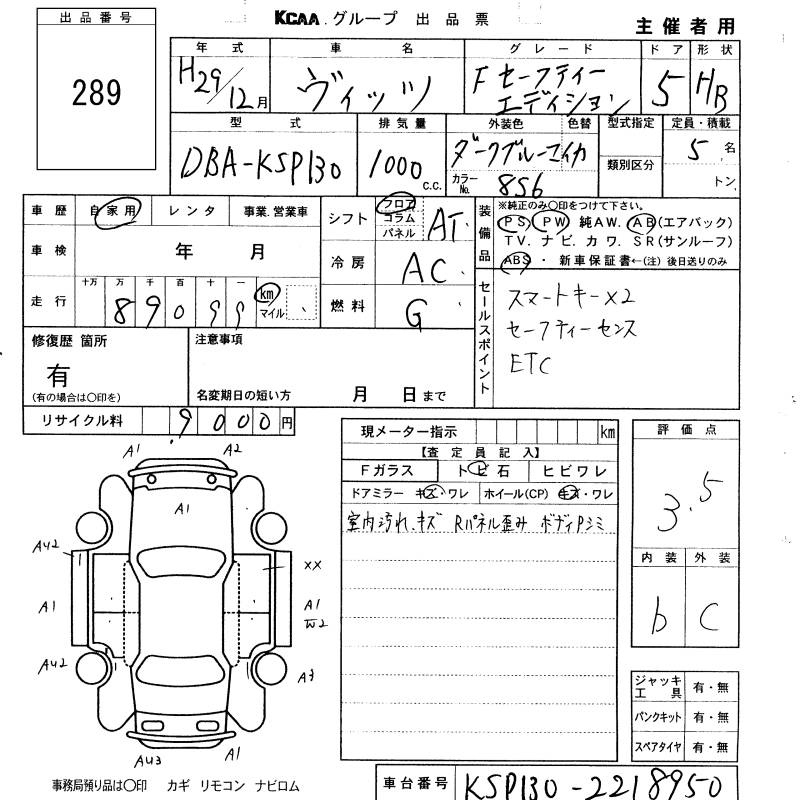 出品番号
289
KCAA.グループ 出品票
主催者用
年式 車名 グレード ドア 形状
H29/12月 ヴィッツ F セーフティー エディション 5 HB
型式 排気量 外装色 色替 型式指定 定員・積載
DBA-KSP130 1000 c.c. ダークブルーマイカ 類別区分 5名
カラーNo. 856 トン
車歴 自家用 レンタ 事業.営業車
車検 年 月
十万 万 千 百 十 一
走行 89099 km マイル
シフト フロア コラム パネル AT.
冷房 AC
燃料 G
装備品
※純正のみ○印をつけて下さい。
PS PW 純AW. AB(エアバック)
TV. ナビ. カワ. SR(サンルーフ)
ABS ・ 新車保証書←(注) 後日送りのみ
セールスポイント
スマートキーx2
セーフティーセンス
ETC
修復歴 箇所
有
(有の場合は○印を)
注意事項
名変期日の短い方 月 日まで
リサイクル料 9000円
現メーター指示 km
【査定員記入】
Fガラス トビ石 ヒビワレ
ドアミラー キズ・ワレ ホイール(CP) キズ・ワレ
室内汚れ、キズ Rパネル歪み ボディPシミ
評価点
3.5
内装 外装
b C
ジャッキ工具 有・無
パンクキット 有・無
スペアタイヤ 有・無
A1 A2
A1
AU2 XX
A1 A1
W2
AU2 A3
AU3 A1
事務局預り品は○印 カギ リモコン ナビロム
車台番号 KSP130-2218950